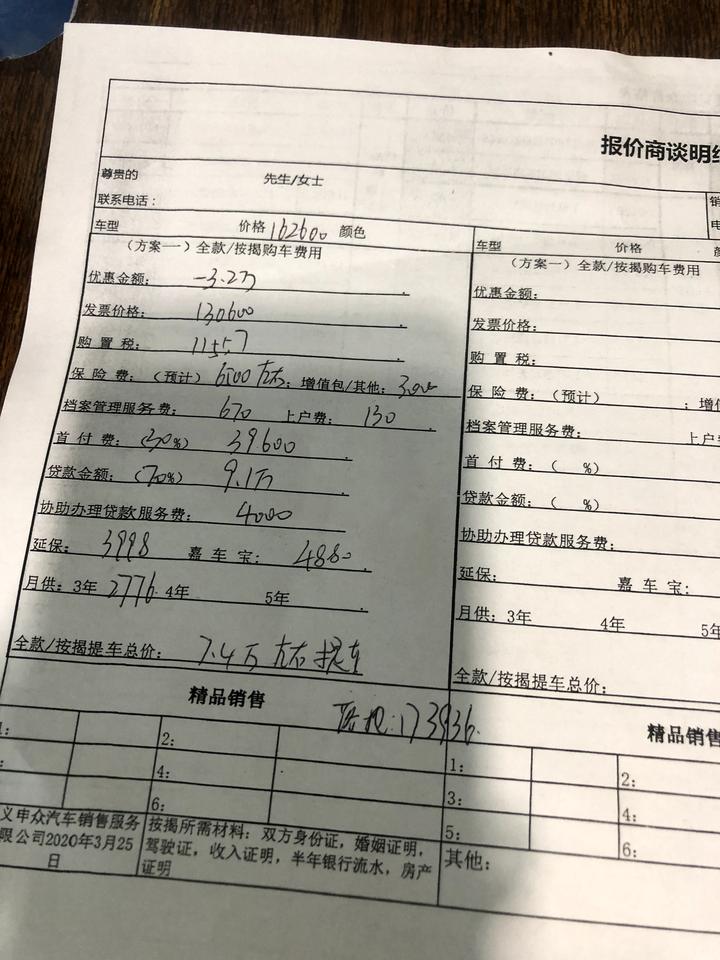 报价商谈明
尊贵的 先生/女士
联系电话：
销
电
车型 价格 162600 颜色
（方案一）全款/按揭购车费用
优惠金额： -3.2万
发票价格： 130600
购 置 税： 11557
保 险 费：（预计） 6500 左右；增值包/其他： 3000
档案管理服务费： 670 上户费： 130
首 付 费：（30%） 39600
贷款金额：（70%） 9.1万
协助办理贷款服务费： 4000
延保： 3998 嘉 车 宝： 4880
月供：3年 2776 4年 5年
全款/按揭提车总价： 7.4万 左右 提车
落地：173936
车型 价格
（方案一）全款/按揭购车费用
优惠金额：
发票价格：
购 置 税：
保 险 费：（预计） ；增
档案管理服务费： 上户
首 付 费：（ %）
贷款金额：（ %）
协助办理贷款服务费：
延保： 嘉 车 宝：
月供：3年 4年 5年
全款/按揭提车总价：
精品销售
1： 2：
4：
6：
精品销售
1： 2：
3： 4：
5： 6：
义申众汽车销售服务
限公司2020年3月25
日
按揭所需材料：双方身份证，婚姻证明，
驾驶证，收入证明，半年银行流水，房产
证明
其他：